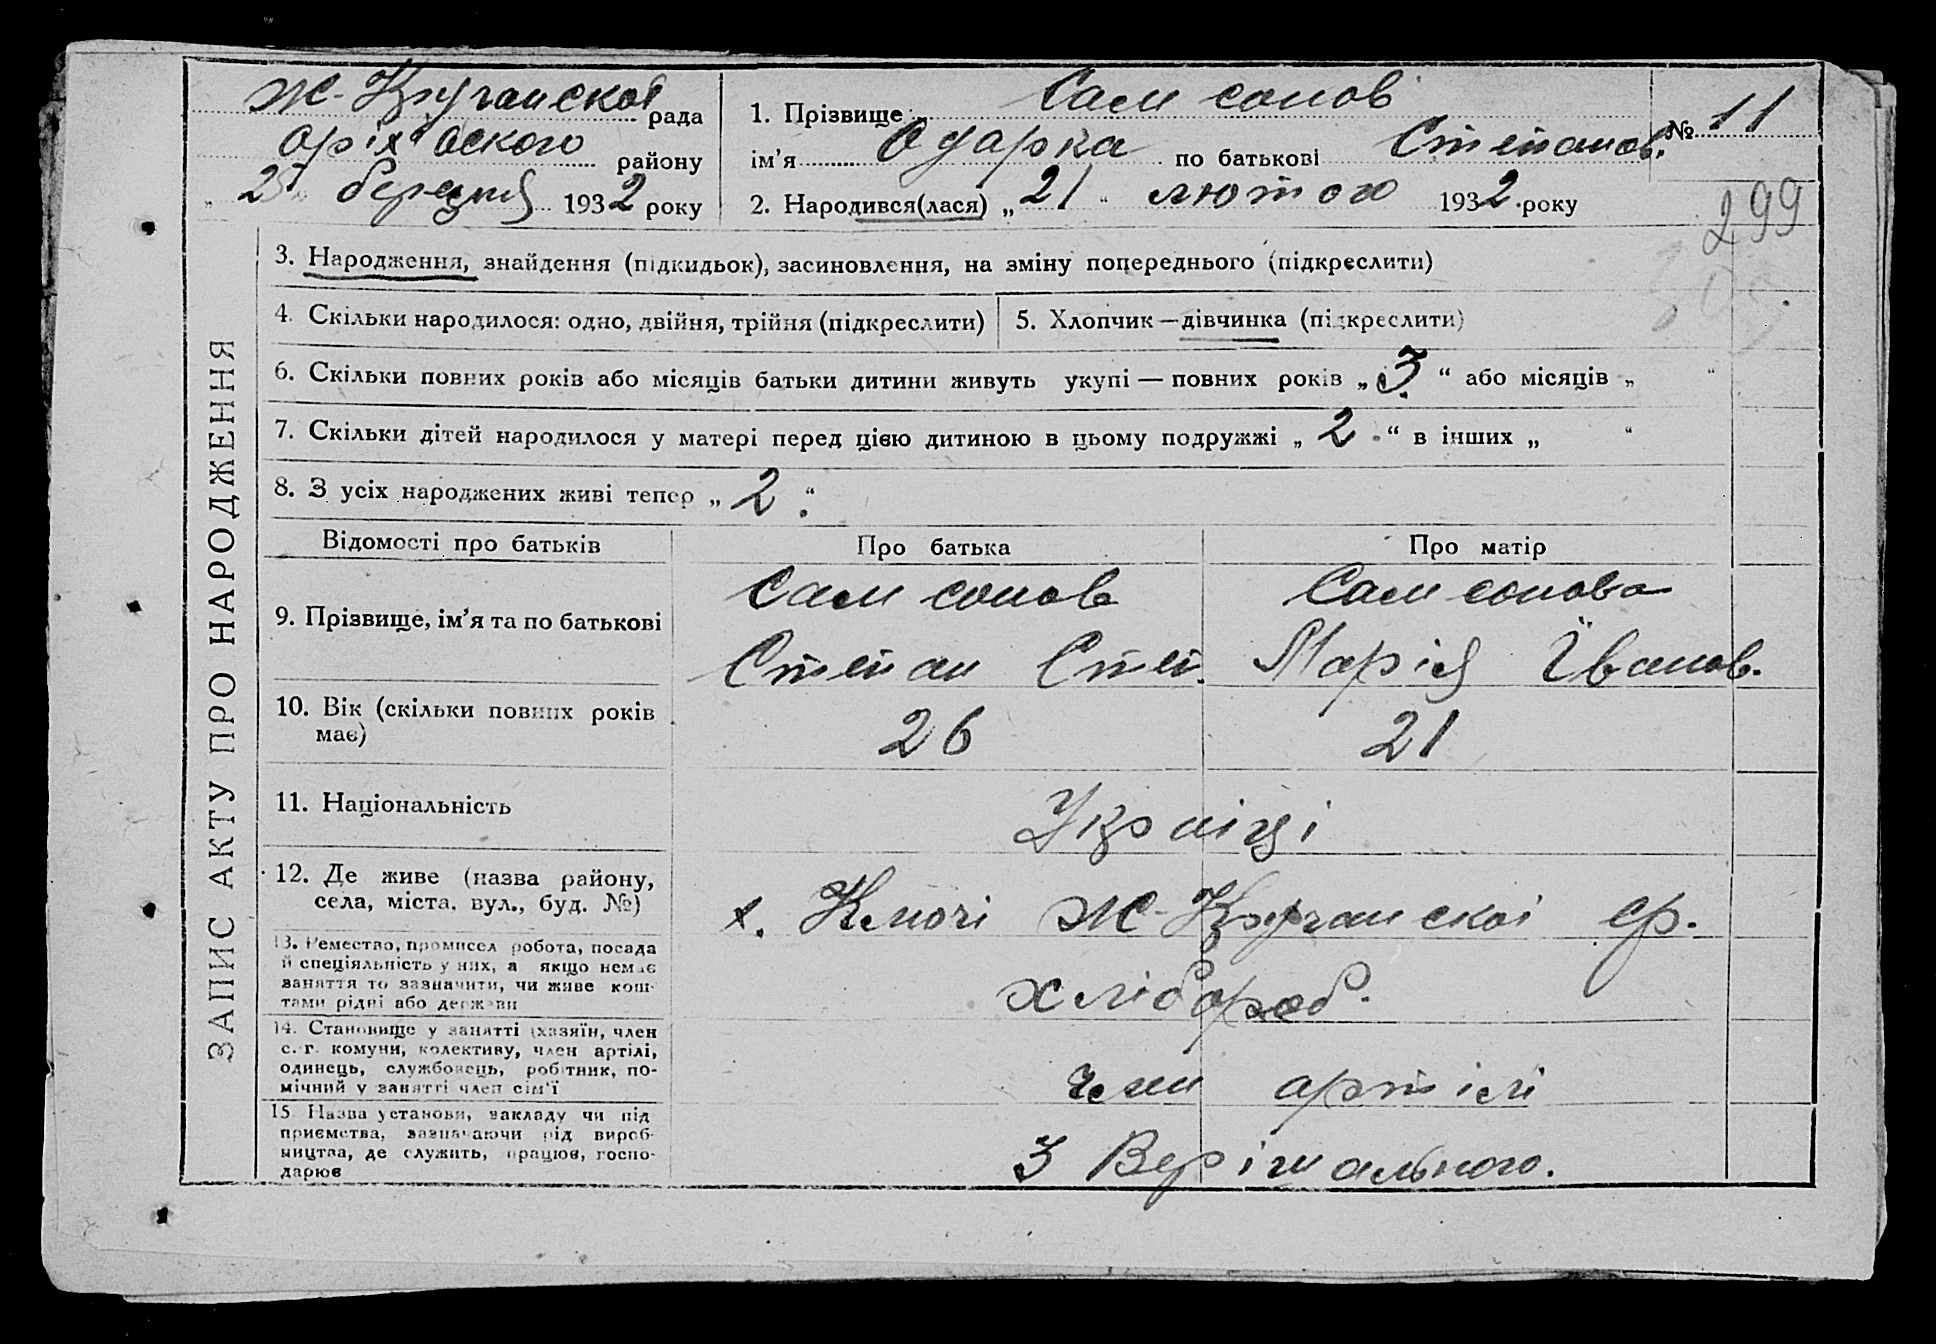 Ж-Кірганскої рада
Оріхівского району
„ 25 “ березня 1932 року
1. Прізвище Самсонов
ім’я Одарка по батькові Степанов.
№ 11
2. Народився(лася) „ 21 “ лютого 1932 року
299
3. Народження, знайдення (підкидьок), засиновлення, на зміну попереднього (підкреслити)
4. Скільки народилося: одно, двійня, трійня (підкреслити)
5. Хлопчик — дівчинка (підкреслити)
6. Скільки повних років або місяців батьки дитини живуть укупі — повних років „ 3 “ або місяців „ “
7. Скільки дітей народилося у матері перед цією дитиною в цьому подружжі „ 2 “ в інших „ “
8. З усіх народжених живі тепер „ 2 “
ЗАПИС АКТУ ПРО НАРОДЖЕННЯ
Відомості про батьків
Про батька
Про матір
9. Прізвище, ім’я та по батькові
Самсонов
Степан Степ.
Самсонова
Марія Іванов.
10. Вік (скільки повних років
має)
26
21
11. Національність
Україці
12. Де живе (назва району,
села, міста, вул., буд. №)
х. Ключі Ж-Кірганскої ср.
13. Ремество, промисел робота, посада
й спеціяльність у них, а якщо немає
заняття то зазначити, чи живе кош-
тами рідні або держави
хлібороб.
14. Становище у занятті (хазяїн, член
с.-г. комуни, колективу, член артілі,
одинець, службовець, робітник, по-
мічний у занятті член сім’ї
член артілі
15. Назва установи, закладу чи під
приємства, зазначаючи рід вироб-
ництва, де служить, працює, госпо-
дарює
З